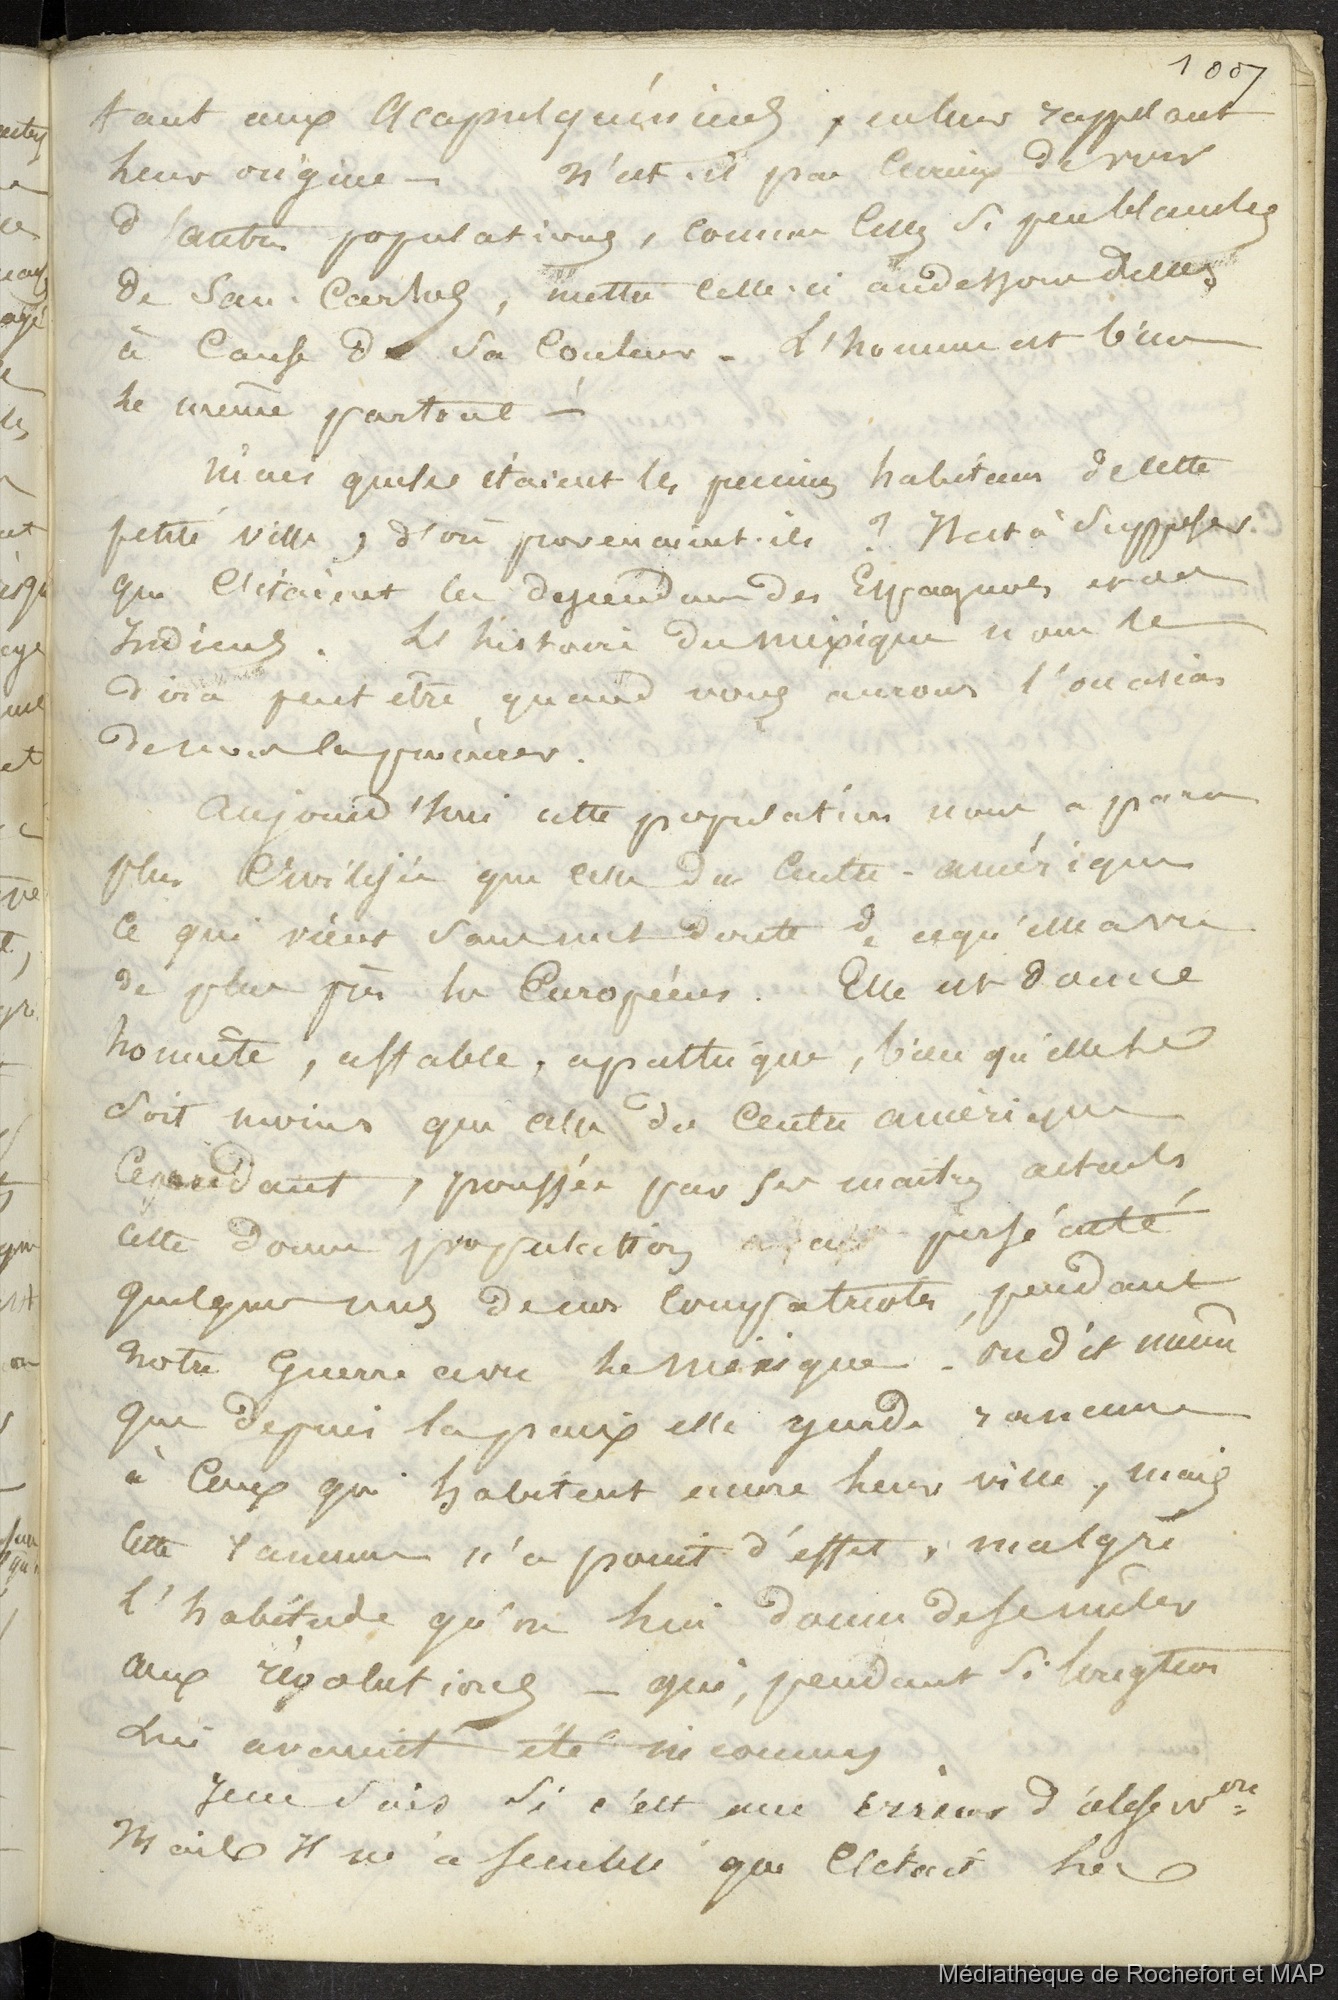 1007
tant aux Acapulquéniens, en leur rappelant
leur origine — N'est-il pas curieux de voir
d'autres populations, comme celles si peu blanches
de San-Carlos, mettre celle-ci audessous d'elles,
à cause de sa couleur - L'homme est bien
le même partout —
Mais quels étaient les premiers habitans de cette
petite ville, d'où provenaient-ils ? Il est à supposer
que c'étaient les descendans des Espagnols et des
Indiens. L'histoire du Mexique nous le
dira peut être quand nous aurons l'occasion
de nous la procurer.
Aujourd'hui cette population nous a paru
plus civilisée que celle du Centre-amérique
ce qui vient sans nul doute de ce qu'elle a vu
de plus près les Européens. Elle est douce
honnête, affable, apathique, bien qu'elle le
soit moins que celle du Centre amérique
Cependant, poussée par ses maitres actuels
cette douce population persécuté
quelques uns de nos compatriotes pendant
notre Guerre avec le Mexique - on dit même
que depuis la paix elle garde rancune
à ceux qui habitent encore leur ville, mais
cette rancune n'a point d'effet, malgré
l'habitude qu'on lui donne de se mêler
aux révolutions — qui, pendant si longtems
lui avaient été inconnues
Je ne sais si c'est une erreur d'observon=
Mais Il m'a semblé que c'était les
Médiathèque de Rochefort et MAP